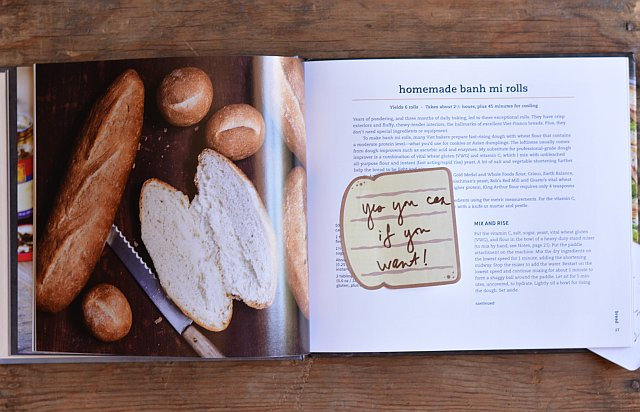 homemade banh mi rolls
Yields 6 rolls · Takes about 2½ hours, plus 45 minutes for cooling
Years of pondering, and three months of daily baking, led to these exceptional rolls. They have crisp
exteriors and fluffy, chewy-tender interiors, the hallmarks of excellent Viet-Franco breads. Plus, they
don't need special ingredients or equipment.
To make banh mi rolls, many Viet bakers prepare fast-rising dough with wheat flour that contains
a moderate protein level—what you'd use for cookies or Asian dumplings. The loftiness usually comes
from dough improvers such as ascorbic acid and enzymes. My substitute for professional-grade dough
improver is a combination of vital wheat gluten (VWG) and vitamin C, which I mix with unbleached
all-purpose flour and instant (fast acting/rapid rise) yeast. A bit of salt and vegetable shortening further
help the bread to be light and
Gold Medal and Whole Foods flour, Crisco, Earth Balance,
yeast, Bob's Red Mill and Giusto's vital wheat
higher protein, King Arthur flour requires only 4 teaspoons
using the metric measurements. For the vitamin C,
with a knife or mortar and pestle.
yes you can
if you
want!
MIX AND RISE
Put the vitamin C, salt, sugar, yeast, vital wheat gluten
(VWG), and flour in the bowl of a heavy-duty stand mixer
(to mix by hand, see Notes, page 23). Put the paddle
attachment on the machine. Mix the dry ingredients on
the lowest speed for 1 minute, adding the shortening
midway. Stop the mixer to add the water. Restart on the
lowest speed and continue mixing for about 1 minute to
form a shaggy ball around the paddle. Let sit for 5 min-
utes, uncovered, to hydrate. Lightly oil a bowl for rising
the dough. Set aside.
continued
bread